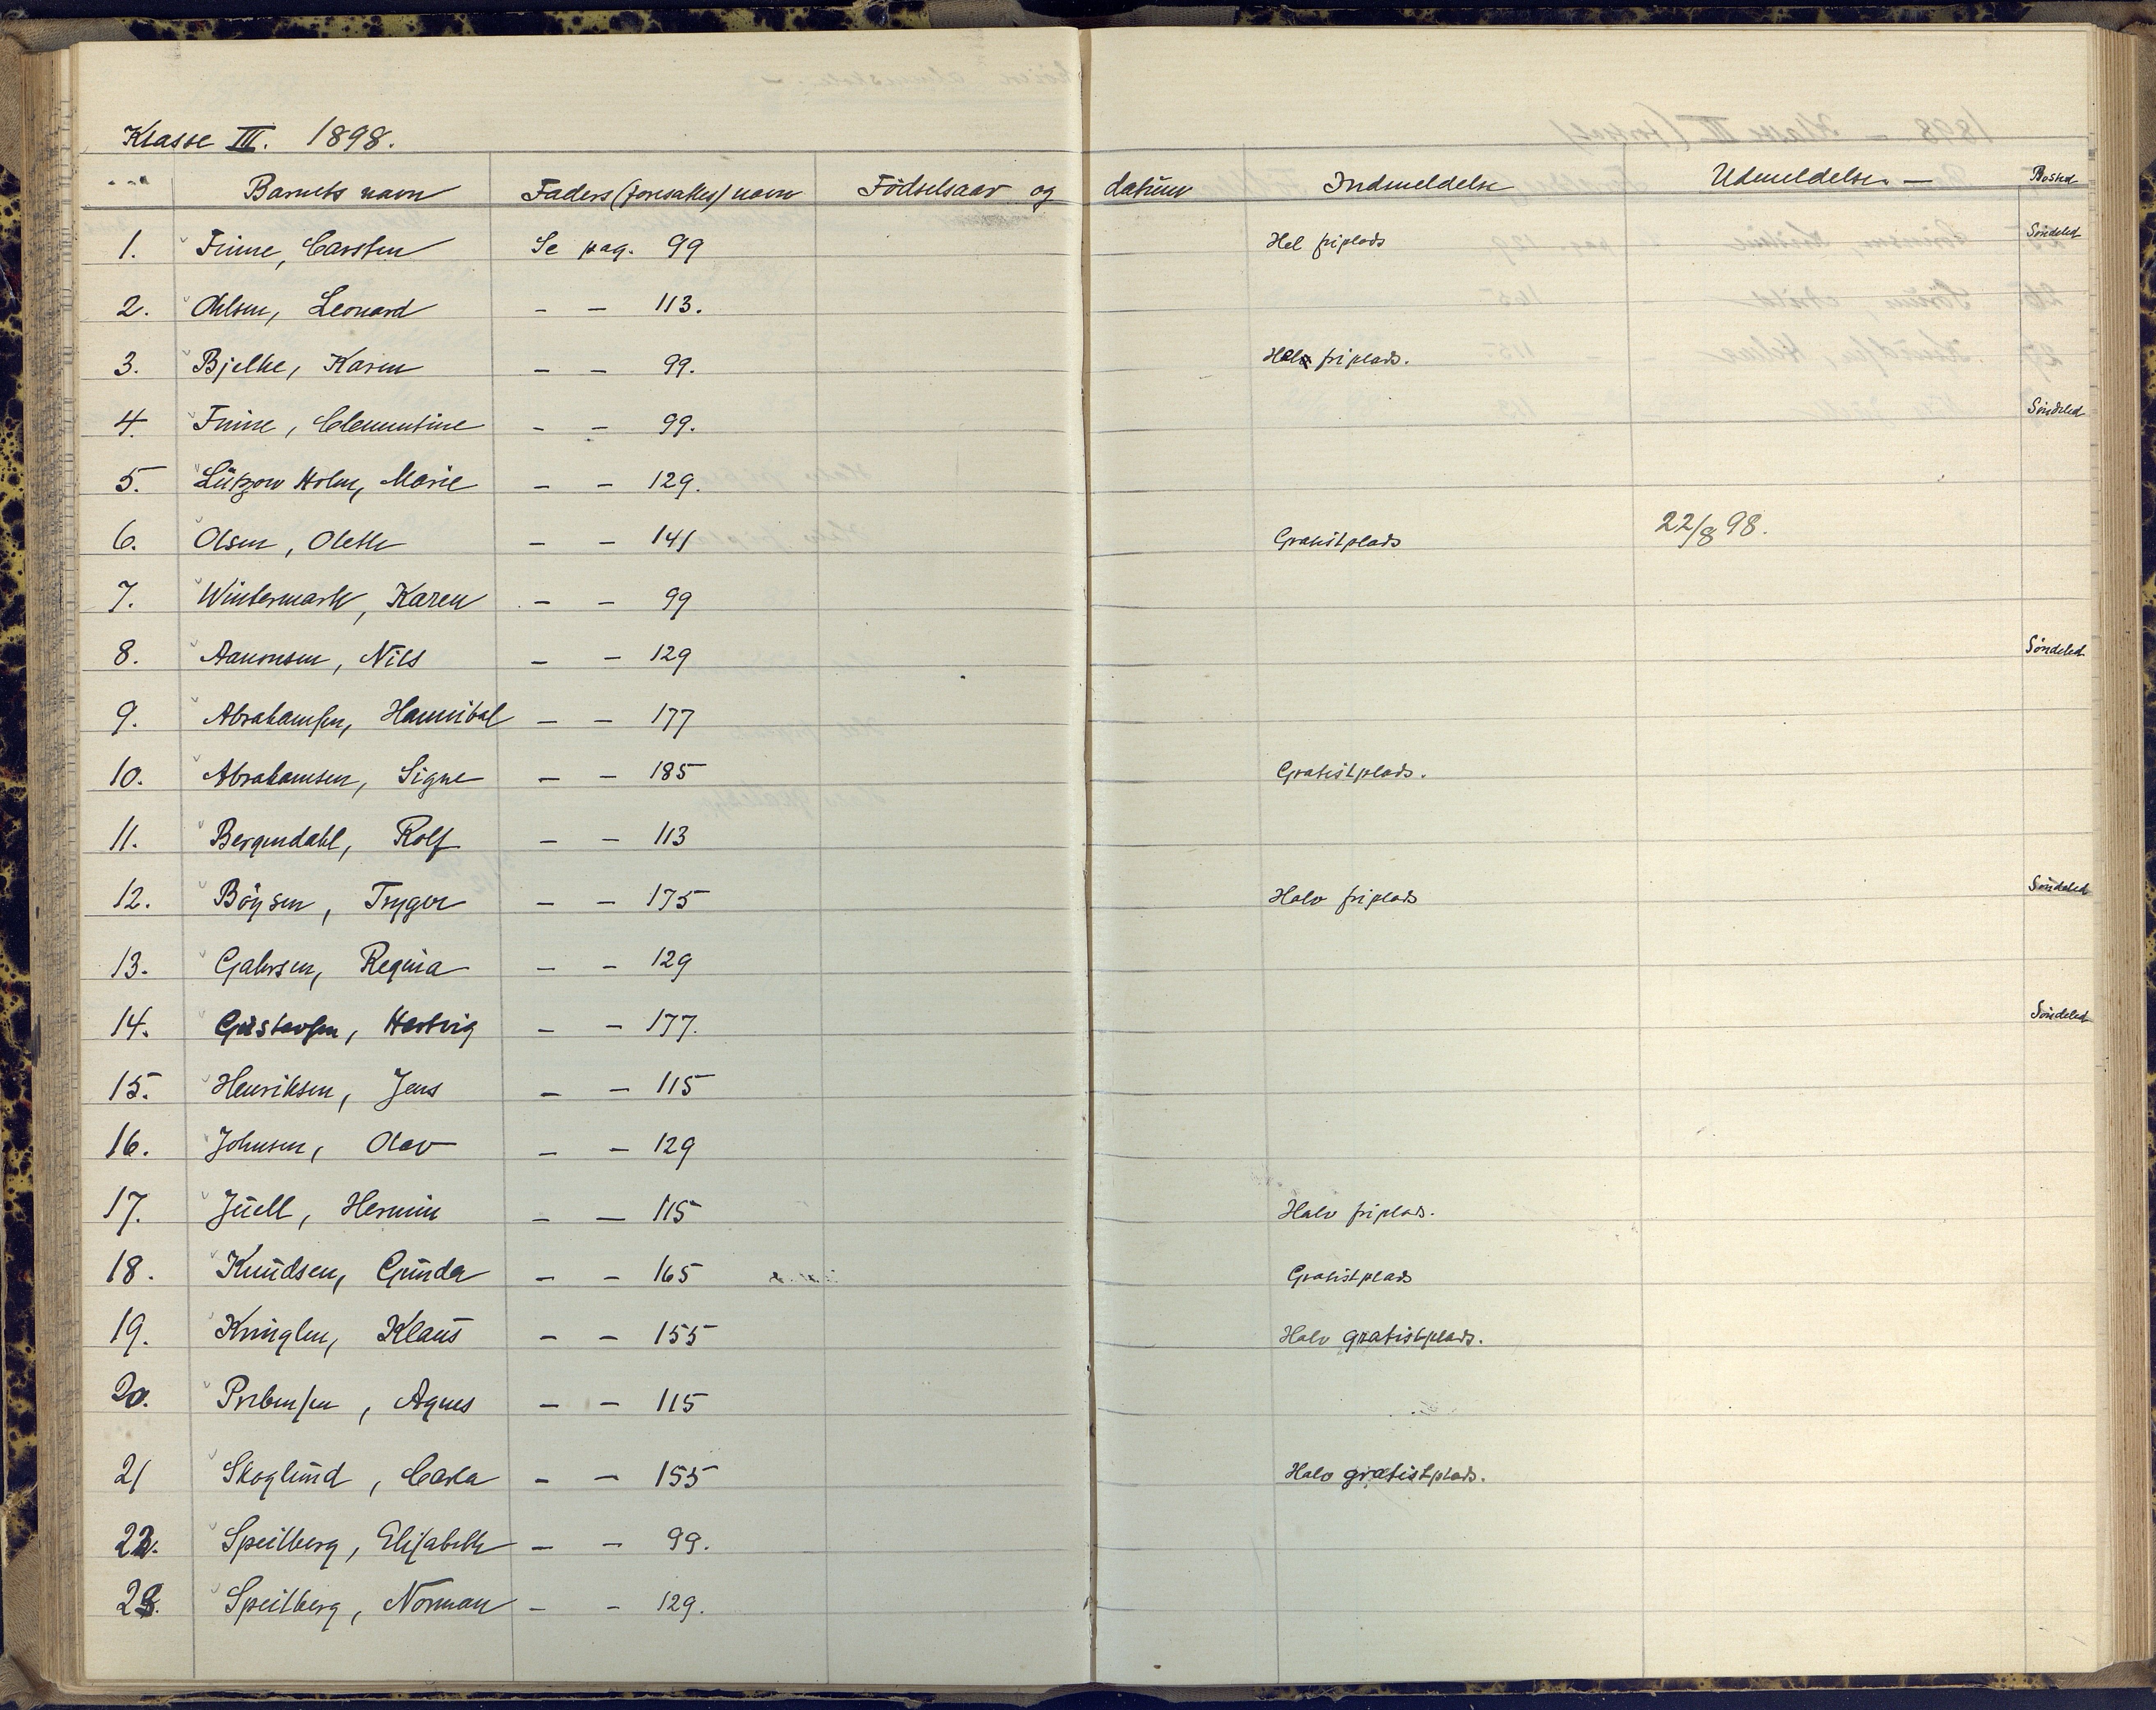 Klasse III. 1898.
Barnets navn Faders (foresattes) navn Födselsaar og datum Indmeldelse Udmeldelse. — Bosted
1. Finne, Carsten Se pag. 99 Hel friplads Söndeled
2. Ohlsen, Leonard - - 113.
3. Bjelke, Karen - - 99. Hel friplads.
4. Finne, Clementine - - 99. Söndeled
5. Lützow Holm, Marie - - 129.
6. Olsen, Olette - - 141 Gratistplads 22/8 98.
7. Wintermark, Karen - - 99
8. Aanonsen, Nils - - 129 Söndeled
9. Abrahamsen, Hannibal - - 177
10. Abrahamsen, Signe - - 185 Gratistplads.
11. Bergendahl, Rolf - - 113
12. Böysen, Trygve - - 175 Halv friplads Söndeled
13. Gahrsen, Regina - - 129
14. Gustavsen, Hartvig - - 177. Söndeled
15. Henriksen, Jens - - 115
16. Johnsen, Olav - - 129
17. Juell, Hermin - - 115 Halv friplads.
18. Knudsen, Gunda - - 165 Gratistplads
19. Kringlen, Klaus - - 155 Halv gratistplads.
20. Prebensen, Agnes - - 115
21 Skoglund, Carla - - 155 Halv gratistplads.
22. Speilberg, Elisabeth - - 99.
23. Speilberg, Norman - - 129.